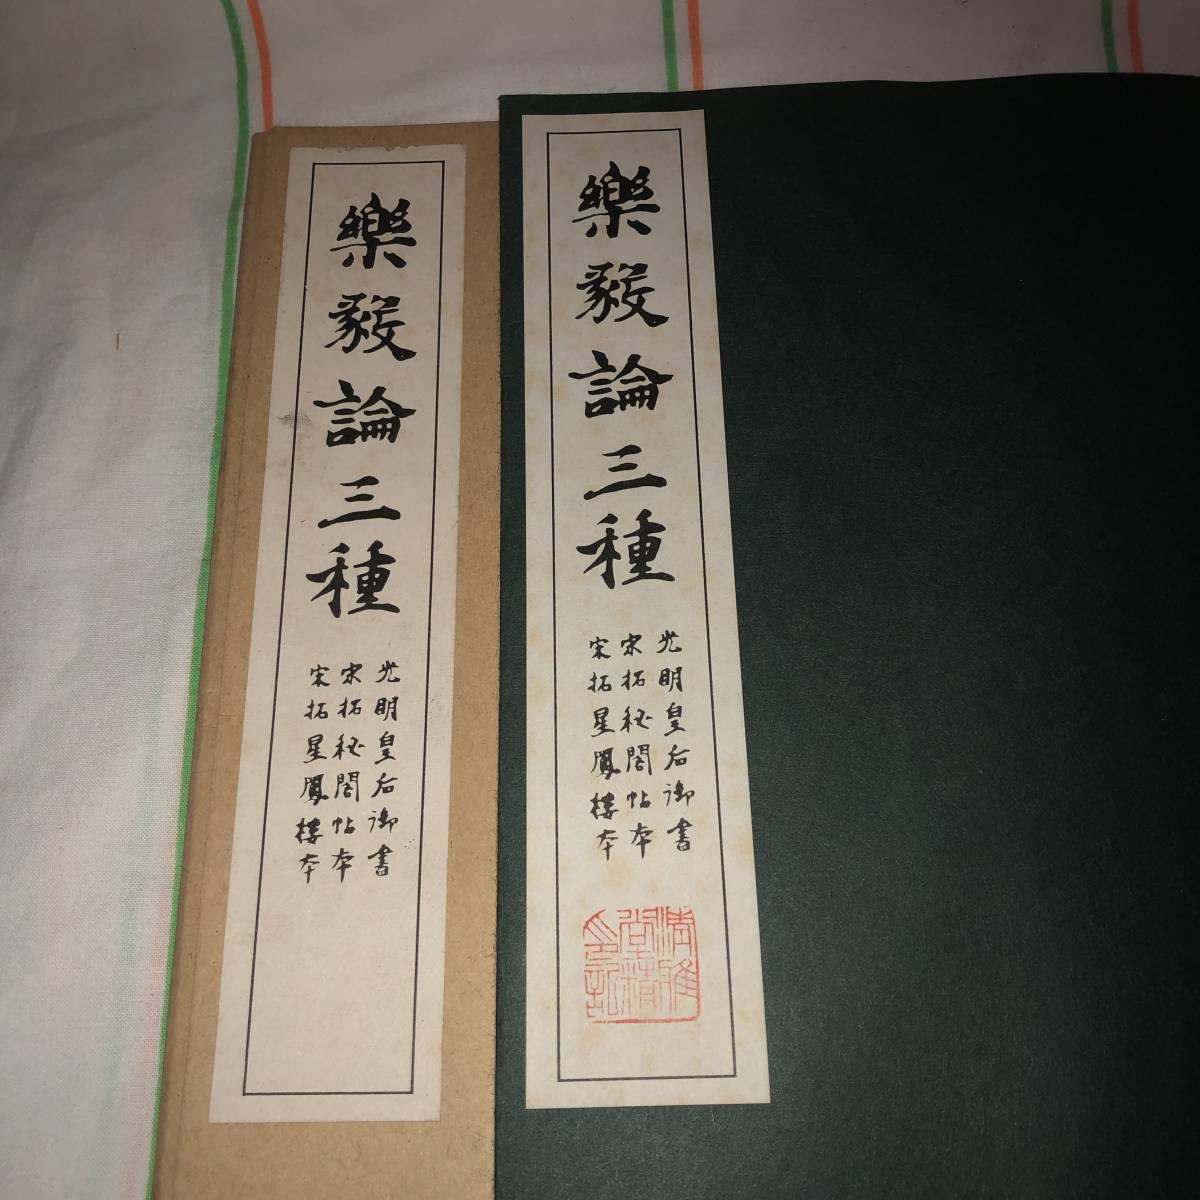 樂毅論三種
光明皇后御書
宋拓秘閣帖本
宋拓星鳳樓本
清雅堂精印記
樂毅論三種
光明皇后御書
宋拓秘閣帖本
宋拓星鳳樓本